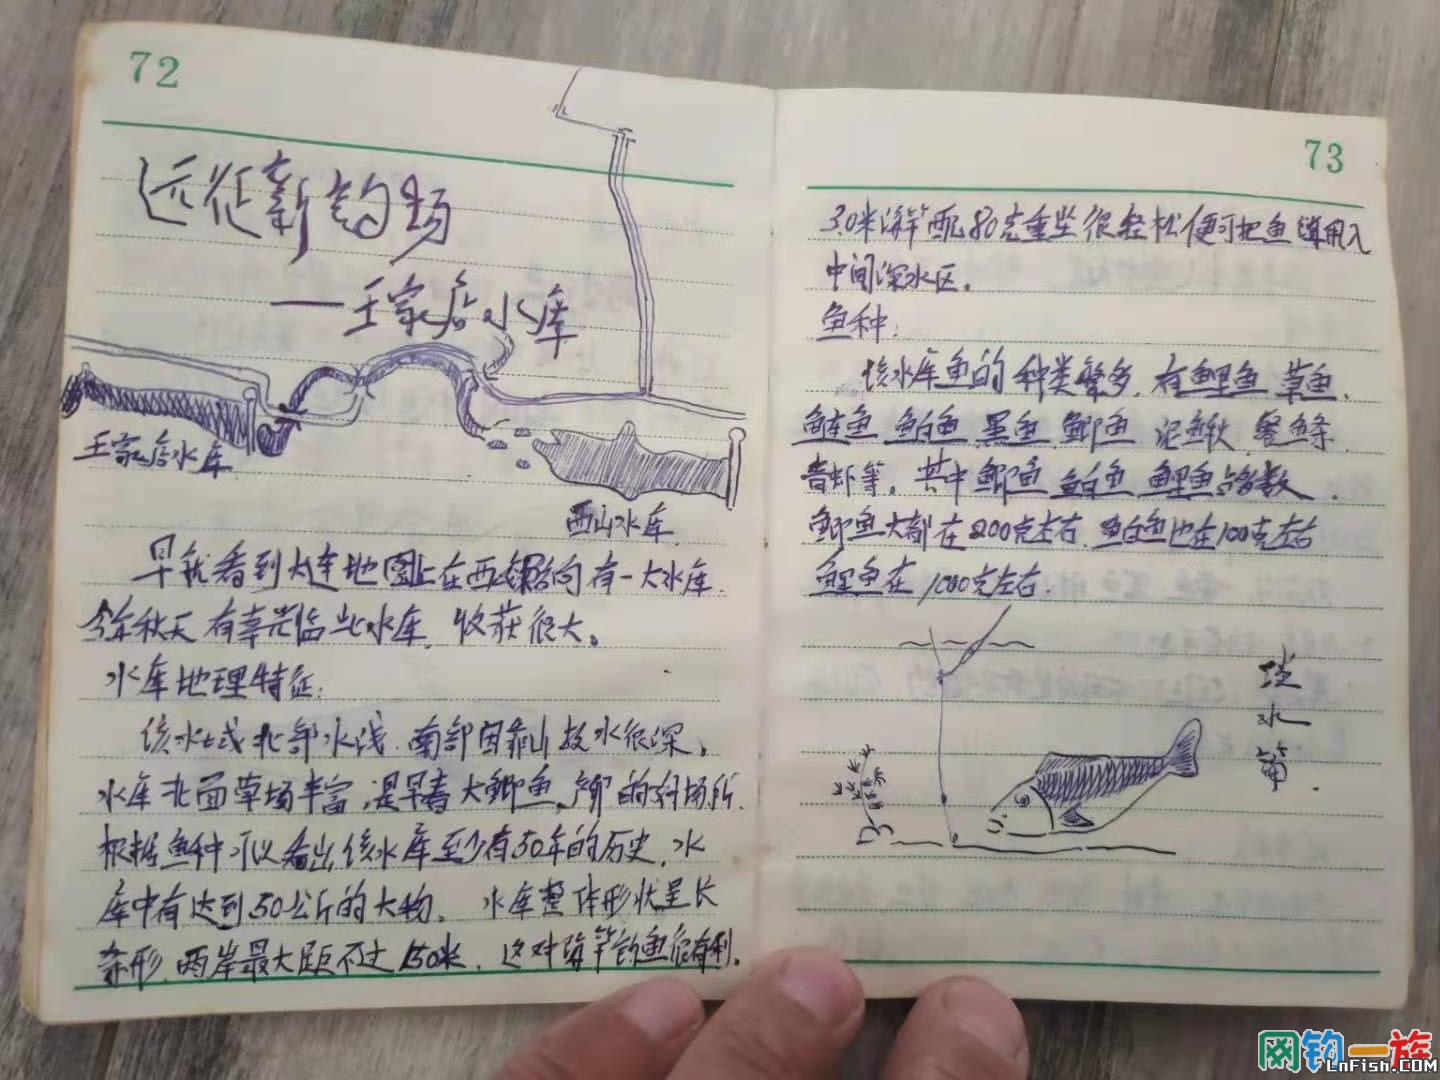 72
远征新钓场
——王家店水库
王家店水库
西山水库
早就看到大连地图上在西 方向有一大水库.
今年秋天有幸光临此水库,收获很大。
水库地理特征:
该水域北部水浅.南部因靠山故水很深。
水库北面草场丰富,是早春大鲫鱼产卵的好场所.
根据鱼种可以看出该水库至少有50年的历史,水
库中有达到50公斤的大物. 水库整体形状呈长
条形.两岸最大距不过150米.这对海竿钓鱼很有利。
73
3.0米海竿配80克重坠很轻松便可把鱼 用入
中间深水区。
鱼种:
该水库鱼的种类繁多.有鲤鱼 草鱼.
鲢鱼 鲌鱼 黑鱼 鲫鱼 泥鳅 餐鲦
青虾等。其中鲫鱼 鲌鱼 鲤鱼占多数.
鲫鱼大都在200克左右.鲌鱼也在100克左右
鲤鱼在1000克左右.
淡水篇
网钓一族
LnFish.COM